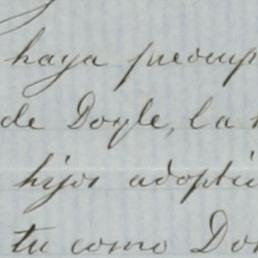 haya preocup
de Doyle, la
hijos adoptiv
tu como Don